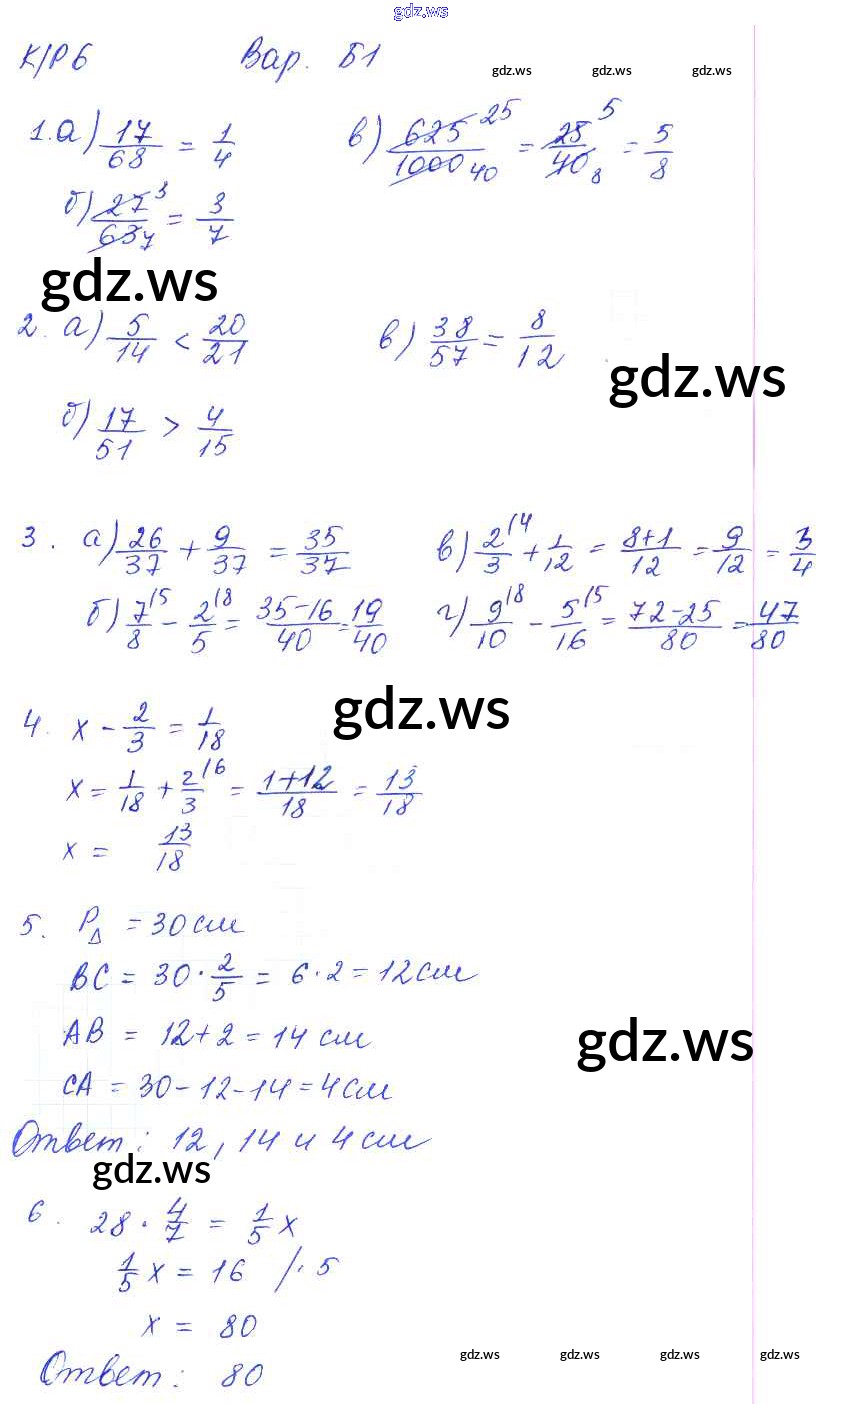 gdz.ws
К/Р 6 Вар. Б1
gdz.ws gdz.ws gdz.ws
1. а) 17/68 = 1/4 в) 625/1000 25 40 = 25/40 5 8 = 5/8
б) 27/63 3 7 = 3/7
gdz.ws
2. а) 5/14 < 20/21 в) 38/57 = 8/12
gdz.ws
б) 17/51 > 4/15
3. а) 26/37 + 9/37 = 35/37 в) 2/3 (4 + 1/12 = 8+1/12 = 9/12 = 3/4
б) 7/8 (5 - 2/5 (8 = 35-16/40 = 19/40 г) 9/10 (8 - 5/16 (5 = 72-25/80 = 47/80
gdz.ws
4. x - 2/3 = 1/18
x = 1/18 + 2/3 (6 = 1+12/18 = 13/18
x = 13/18
5. P△ = 30 см
BC = 30 · 2/5 = 6 · 2 = 12 см
AB = 12 + 2 = 14 см
gdz.ws
CA = 30 - 12 - 14 = 4 см
Ответ: 12, 14 и 4 см
gdz.ws
6. 28 · 4/7 = 1/5 x
1/5 x = 16 /· 5
x = 80
Ответ: 80
gdz.ws gdz.ws gdz.ws gdz.ws